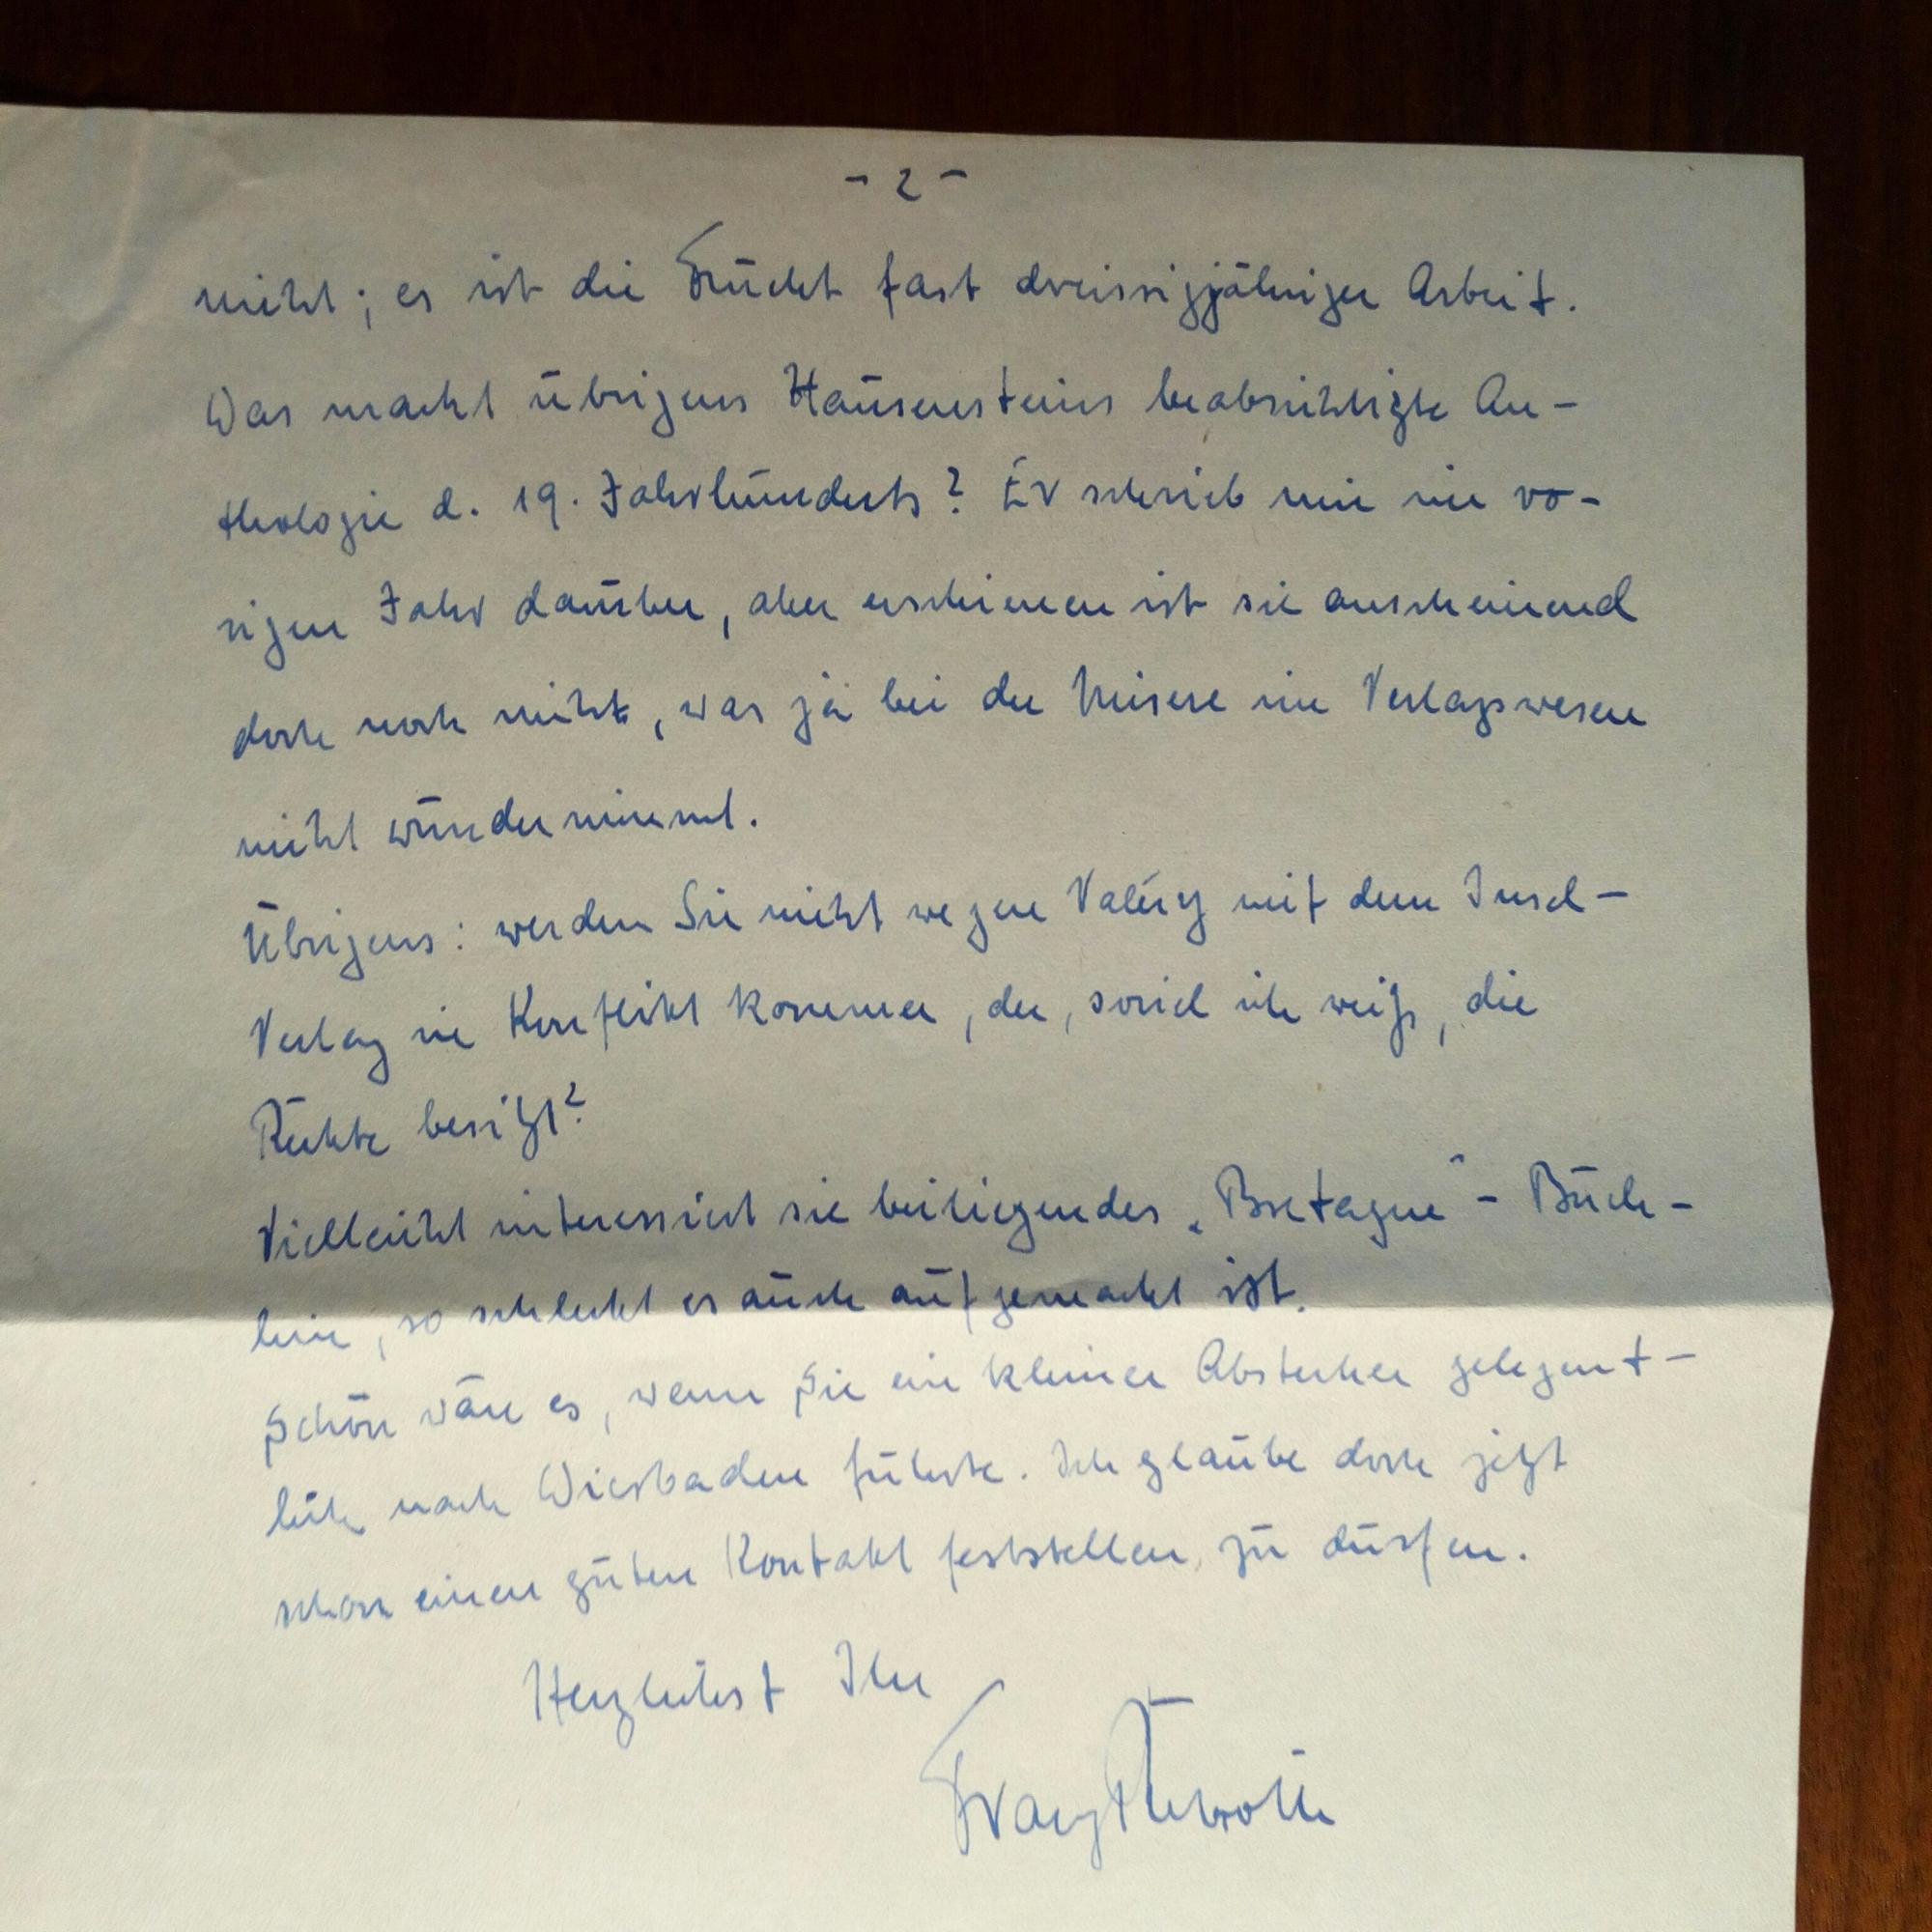 - 2 -
nicht; es ist die Frucht fast dreissigjähriger Arbeit.
Was macht übrigens Hausensteins beabsichtigte An-
thologie d. 19. Jahrhunderts? Er schrieb mir im vo-
rigen Jahr darüber, aber erschienen ist sie anscheinend
doch noch nicht, was ja bei der Misere im Verlagswesen
nicht wundernimmt.
Übrigens: werden Sie nicht wegen Valéry mit dem Insel-
Verlag in Konflikt kommen, der, soviel ich weiß, die
Rechte besitzt?
Vielleicht interessiert sie beiliegendes „Bretagne" - Büch-
lein, so schlecht es auch aufgemacht ist.
Schön wäre es, wenn Sie ein kleiner Abstecher gelegent-
lich nach Wiesbaden führte. Ich glaube doch jetzt
schon einen guten Kontakt feststellen zu dürfen.
Herzlichst Ihr
Franz